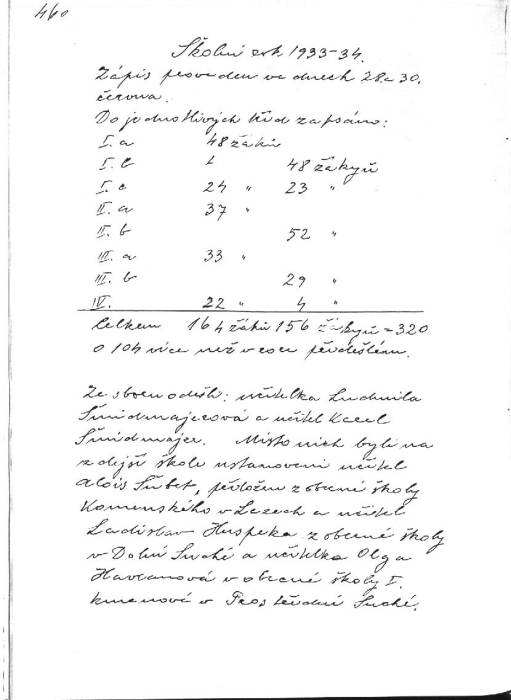 460
Školní rok 1933-34.
Zápis proveden ve dnech 28. a 30.
června.
Do jednotlivých tříd zapsáno:
I. a 48 žáků
I. b 48 žákyň
I. c 24 " 23 "
II. a 37 "
II. b 52 "
III. a 33 "
III. b 29 "
IV. 22 " 4 "
Celkem 164 žáků 156 žákyň = 320
o 104 více než v roce předešlém.
Ze sboru odešli: učitelka Ludmila
Šmidmajerová a učitel Karel
Šmidmajer. Místo nich byli na
zdejší škole ustanoveni učitel
Alois Šubet, přeložen z obecné školy
Komenského v Lazech a učitel
Ladislav Huspeka z obecné školy
v Dolní Suché a učitelka Olga
Havranová v obecné školy I.
kmenová v Prostřední Suché.